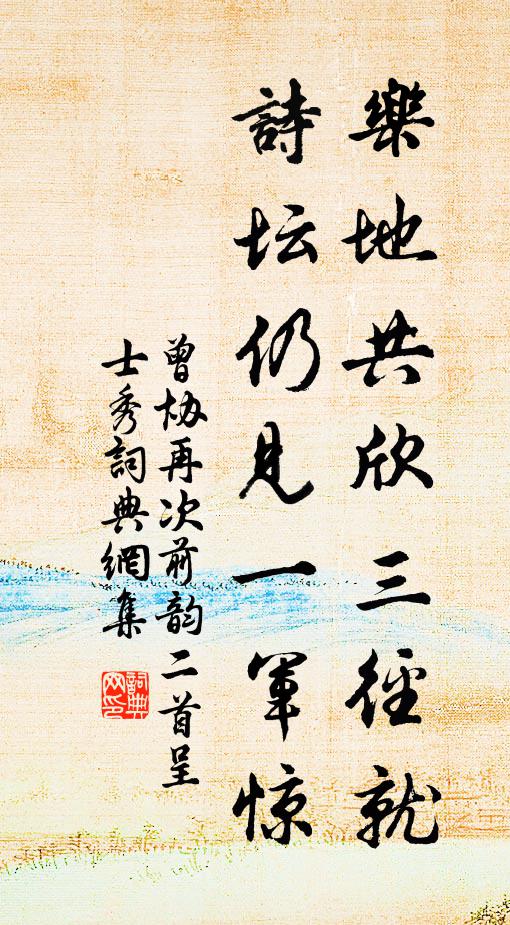 樂地共欣三徑就
詩坛仍見一軍惊
曾协再次前韵二首呈
士秀詞典網集
詞典网印